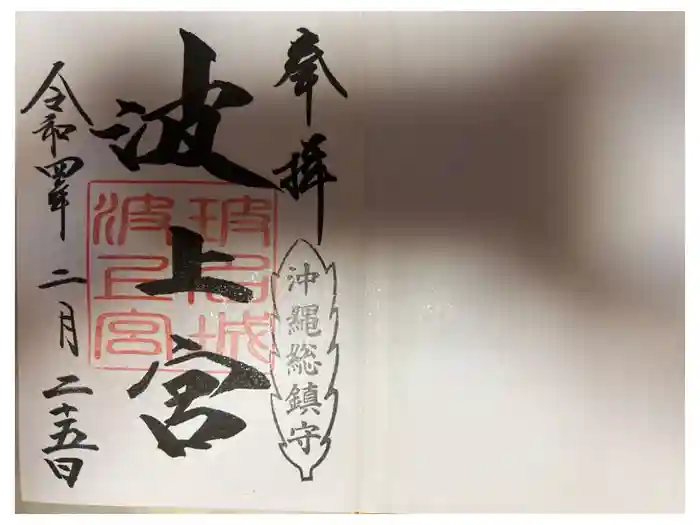 奉拝
沖縄総鎮守
波上宮
令和四年二月二十五日